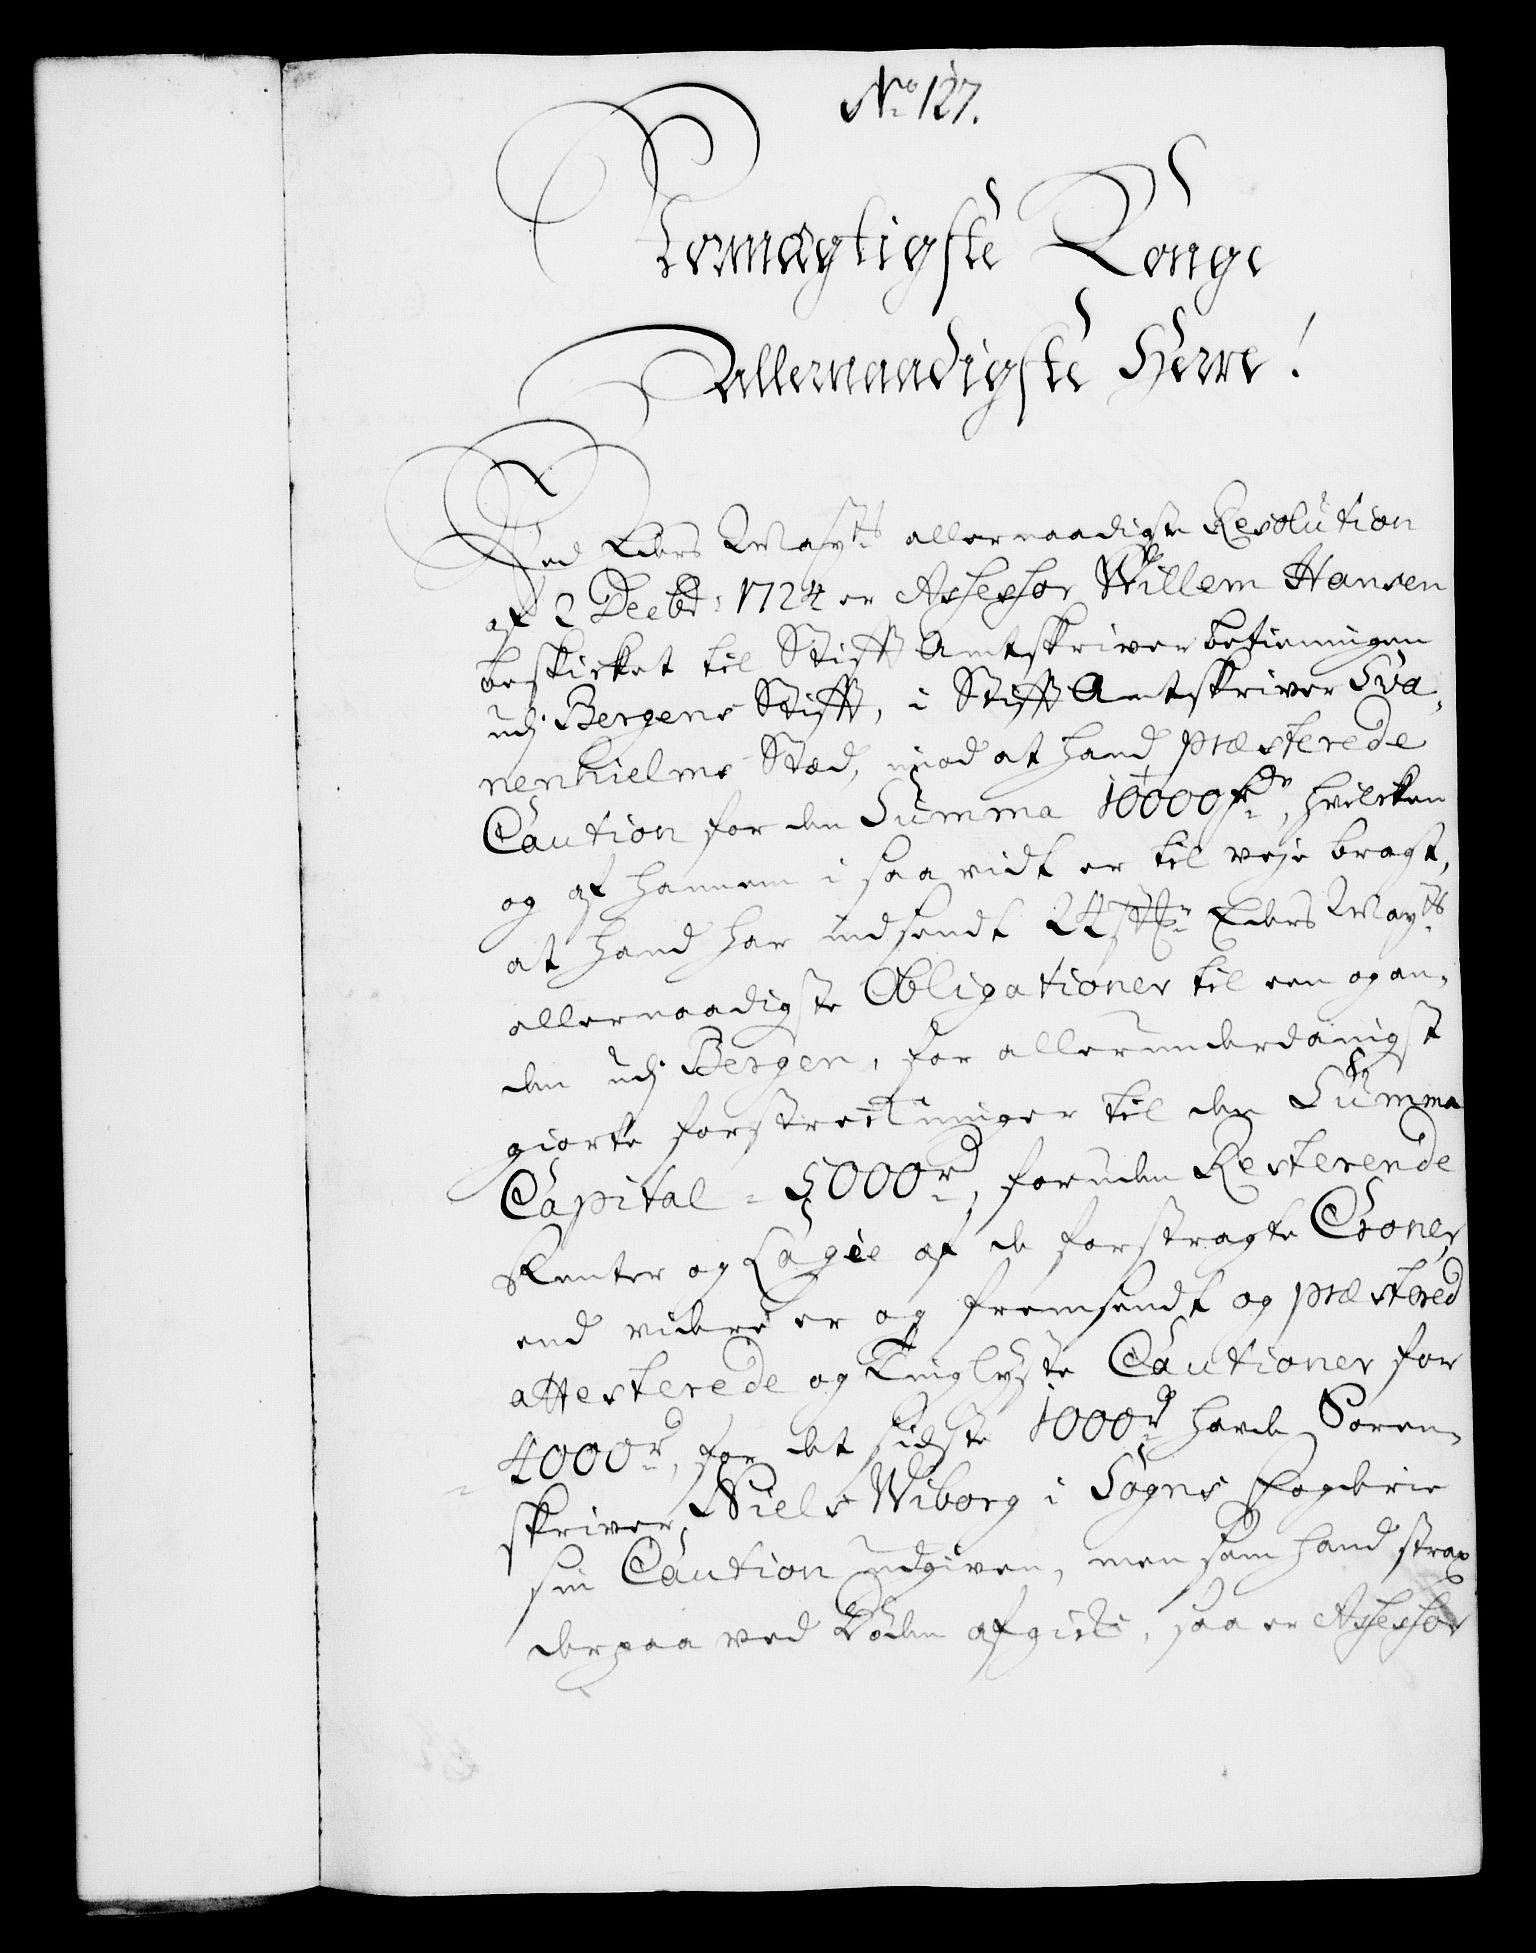 No 127.
Stormægtigste Konge
allernaadigste Herre!
Ved Eders Mayts allernaadigste Resolution
af 2 Decbr: 1724 er Assessor Willem Hansen
beskicket til Stifft Amtskriver betieningen
udj Bergens Stifft, i Stifft Amtskriver Sva-
nenhielms Stæd, imod at hand præsterede
Caution for den Summa 10000 rdr, hvilcken
og af hannem i saa vidt er til veje bragt,
at hand har indsendt 24 st: Eders Mayts
allernaadigste Obligationer til een og an-
den udj Bergen, for allerunderdanigst
giorte forstreckninger til den Summa
Capital = 5000 rd, foruden Resterende
Renter og Lagie af de forstragte Croner,
end videre er og fremsendt og præstered
attesterede og Tinglyste Cautioner for
4000 rd, for det sidste 1000 rd havde Soren-
skriver Niels Wiborg i Sogns Fogderie
sin Caution udgiven, men som hand strax
derpaa ved Døden afgick, saa er Assessor